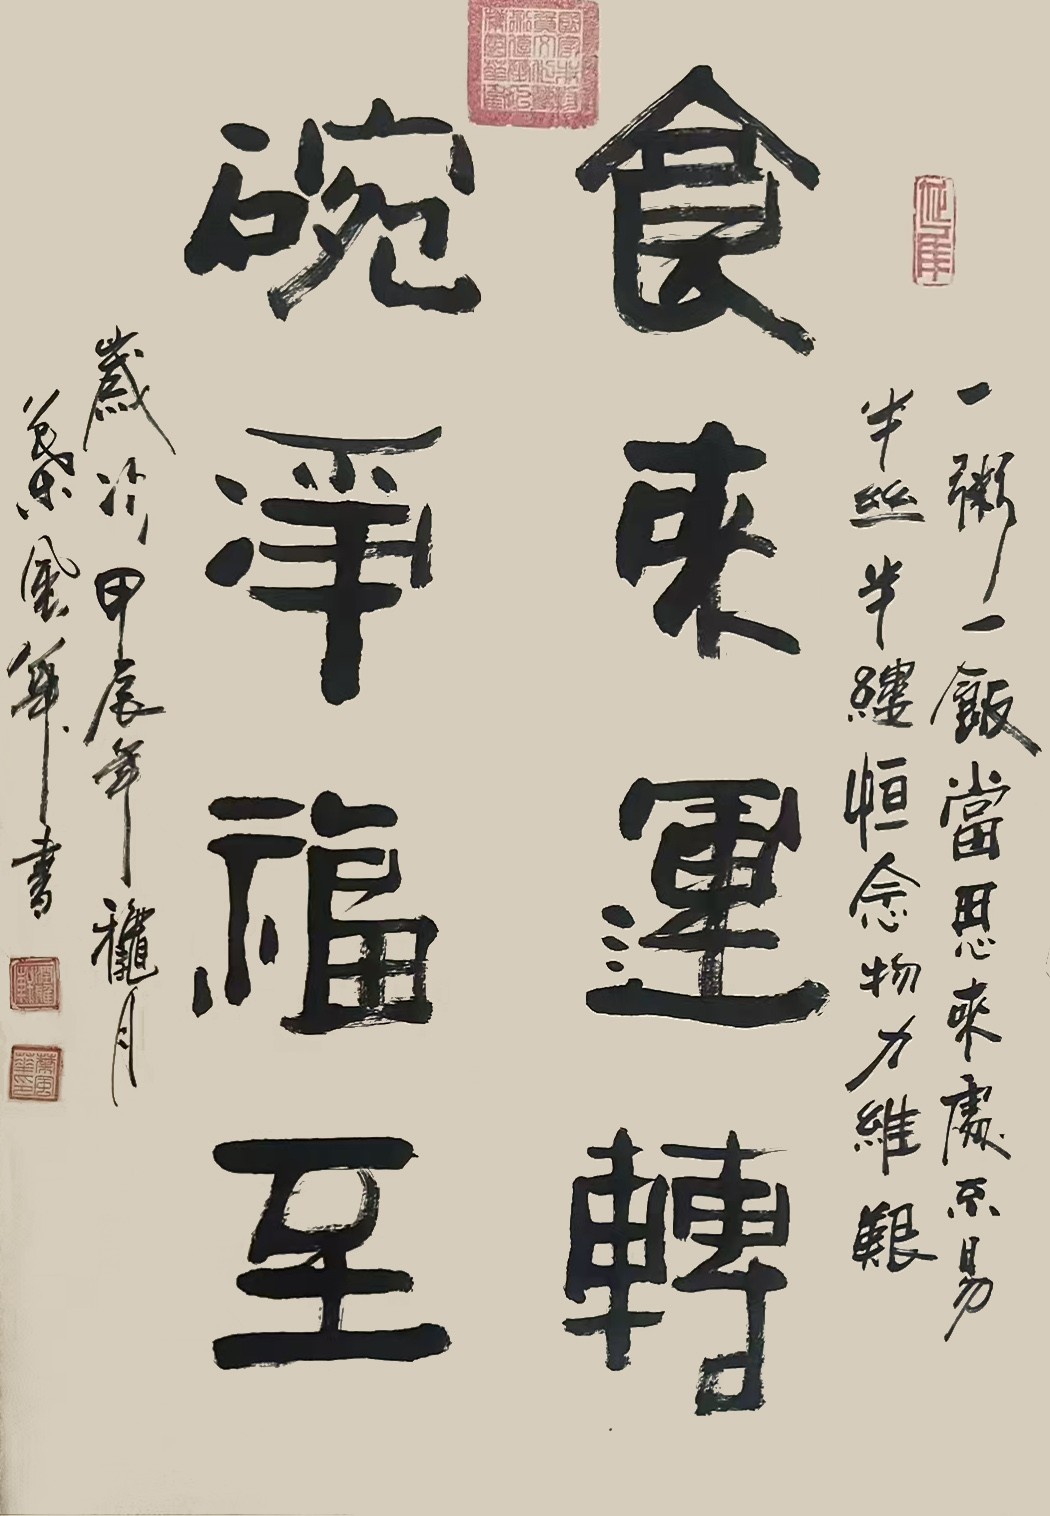 一粥一飯當思來處不易
半絲半縷恒念物力維艱
食來運轉
碗淨福至
歲次甲辰年龝月
葉風華書
葉風華印